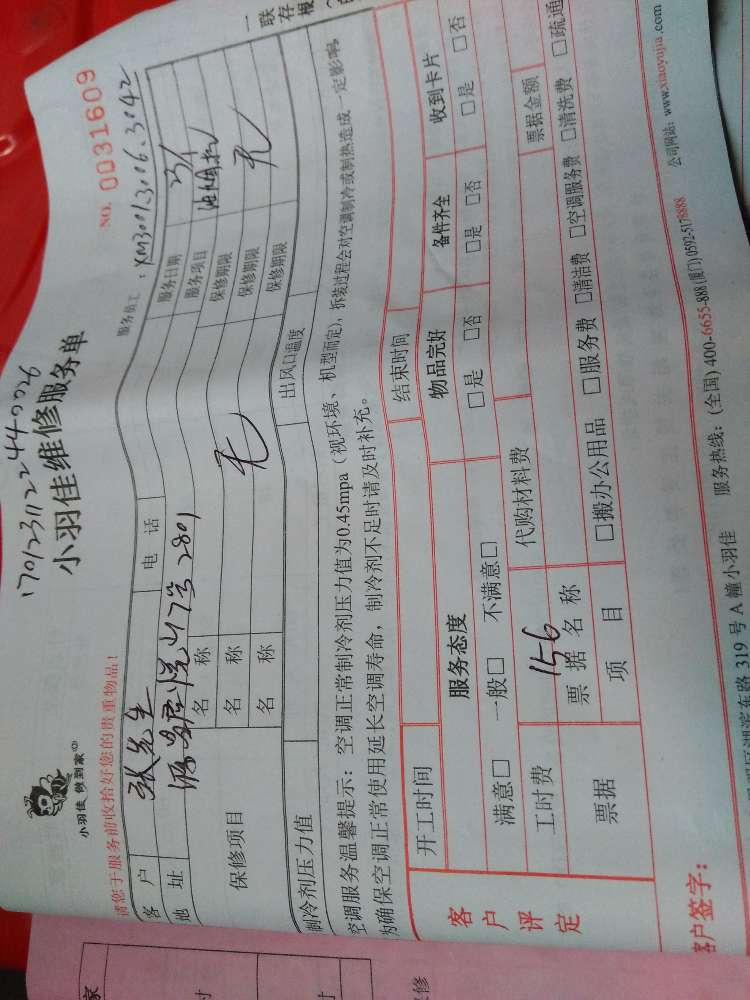 1701231122440026
小羽佳 做到家
小羽佳维修服务单
NO. 0031609
请您于服务前收拾好您的贵重物品！
服务员工：XM3001.3006.3042
客户 张先生 电话 服务日期 3/1
地址 17号2801 服务项目
保修项目 名称 无 保修期限 无
名称 保修期限
名称 保修期限
制冷剂压力值 出风口温度
空调服务温馨提示：空调正常制冷剂压力值为0.45mpa（视环境、机型而定），拆装过程会对空调制冷或制热造成一定影响，
为确保空调正常使用延长空调寿命，制冷剂不足时请及时补充。
开工时间 结束时间
客户评定 服务态度 物品完好 备件齐全 收到卡片
满意□ 一般□ 不满意□ □是 □否 □是 □否 □是 □否
工时费 156 代购材料费
票据 票据名称 票据金额
项目 □搬办公用品 □服务费 □清洁费 □空调服务费 □清洗费 □疏通
客户签字：
路 319 号 A 幢小羽佳 服务热线：(全国) 400-6655-888 (厦门) 0592-5178888 公司网站：www.xiaoyujia.com
一联存根